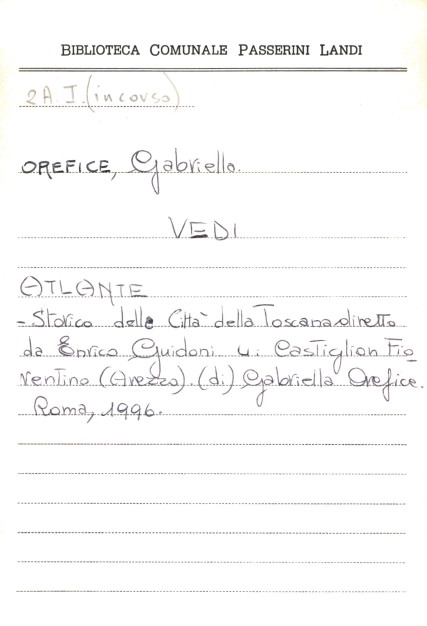 BIBLIOTECA COMUNALE PASSERINI LANDI
2A I. (in corso)
OREFICE, Gabriella.
VEDI
ATLANTE
- Storico delle Città della Toscana diretto
da Enrico Guidoni 4: Castiglion Fio
rentino (Arezzo). (di) Gabriella Orefice.
Roma, 1996.